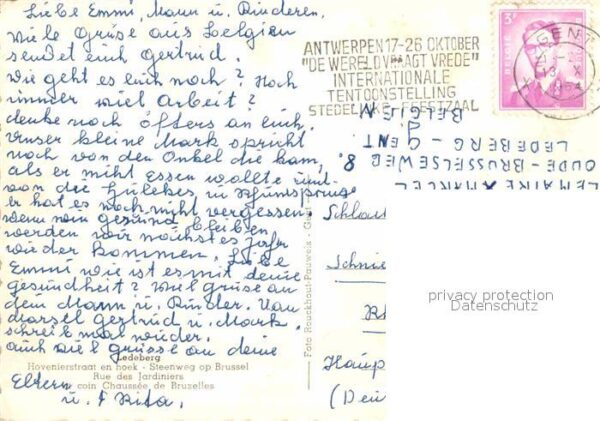 Liebe Emmi, Mann u. Kinderen.
Viele Grüse aus Belgien
sendet euch Gertrud.
Wie geht es euch noch? Noch
immer viel arbeit?
denke noch öfters an euch.
Unser kleine Mark spricht
noch von den Onkel die kam,
als er nicht essen wollte und
von die
er hat es noch nicht vergessen
wenn wir gesund bleiben
werden wir nächstes jahr
wieder kommen. Liebe
Emmi wie ist es mit deine
gesundheit? viel grüse an
dein Mann u. Kinder. Van
Marsel gertrud u. Mark.
schreib mal wieder.
auch viel grüsse an deine
Eltern
u. Rita.
Ledeberg
Hovenierstraat en hoek - Steenweg op Brussel
Rue des Jardiniers
coin Chaussée de Bruxelles
Foto Rouckhout-Pauwels - G
ANTWERPEN 17-26 OKTOBER
"DE WERELD VRAAGT VREDE"
INTERNATIONALE
TENTOONSTELLING
STEDELIJKE FEESTZAAL
GENT
13 X
1964
3F
BELGIE
LEMAIRE MARCEL
OUDE-BRUSSELSEWEG 8.
LEDEBERG - GENT
BELGIEN
Schlau
Schnie
Rh
Haup
(Deu
privacy protection
Datenschutz